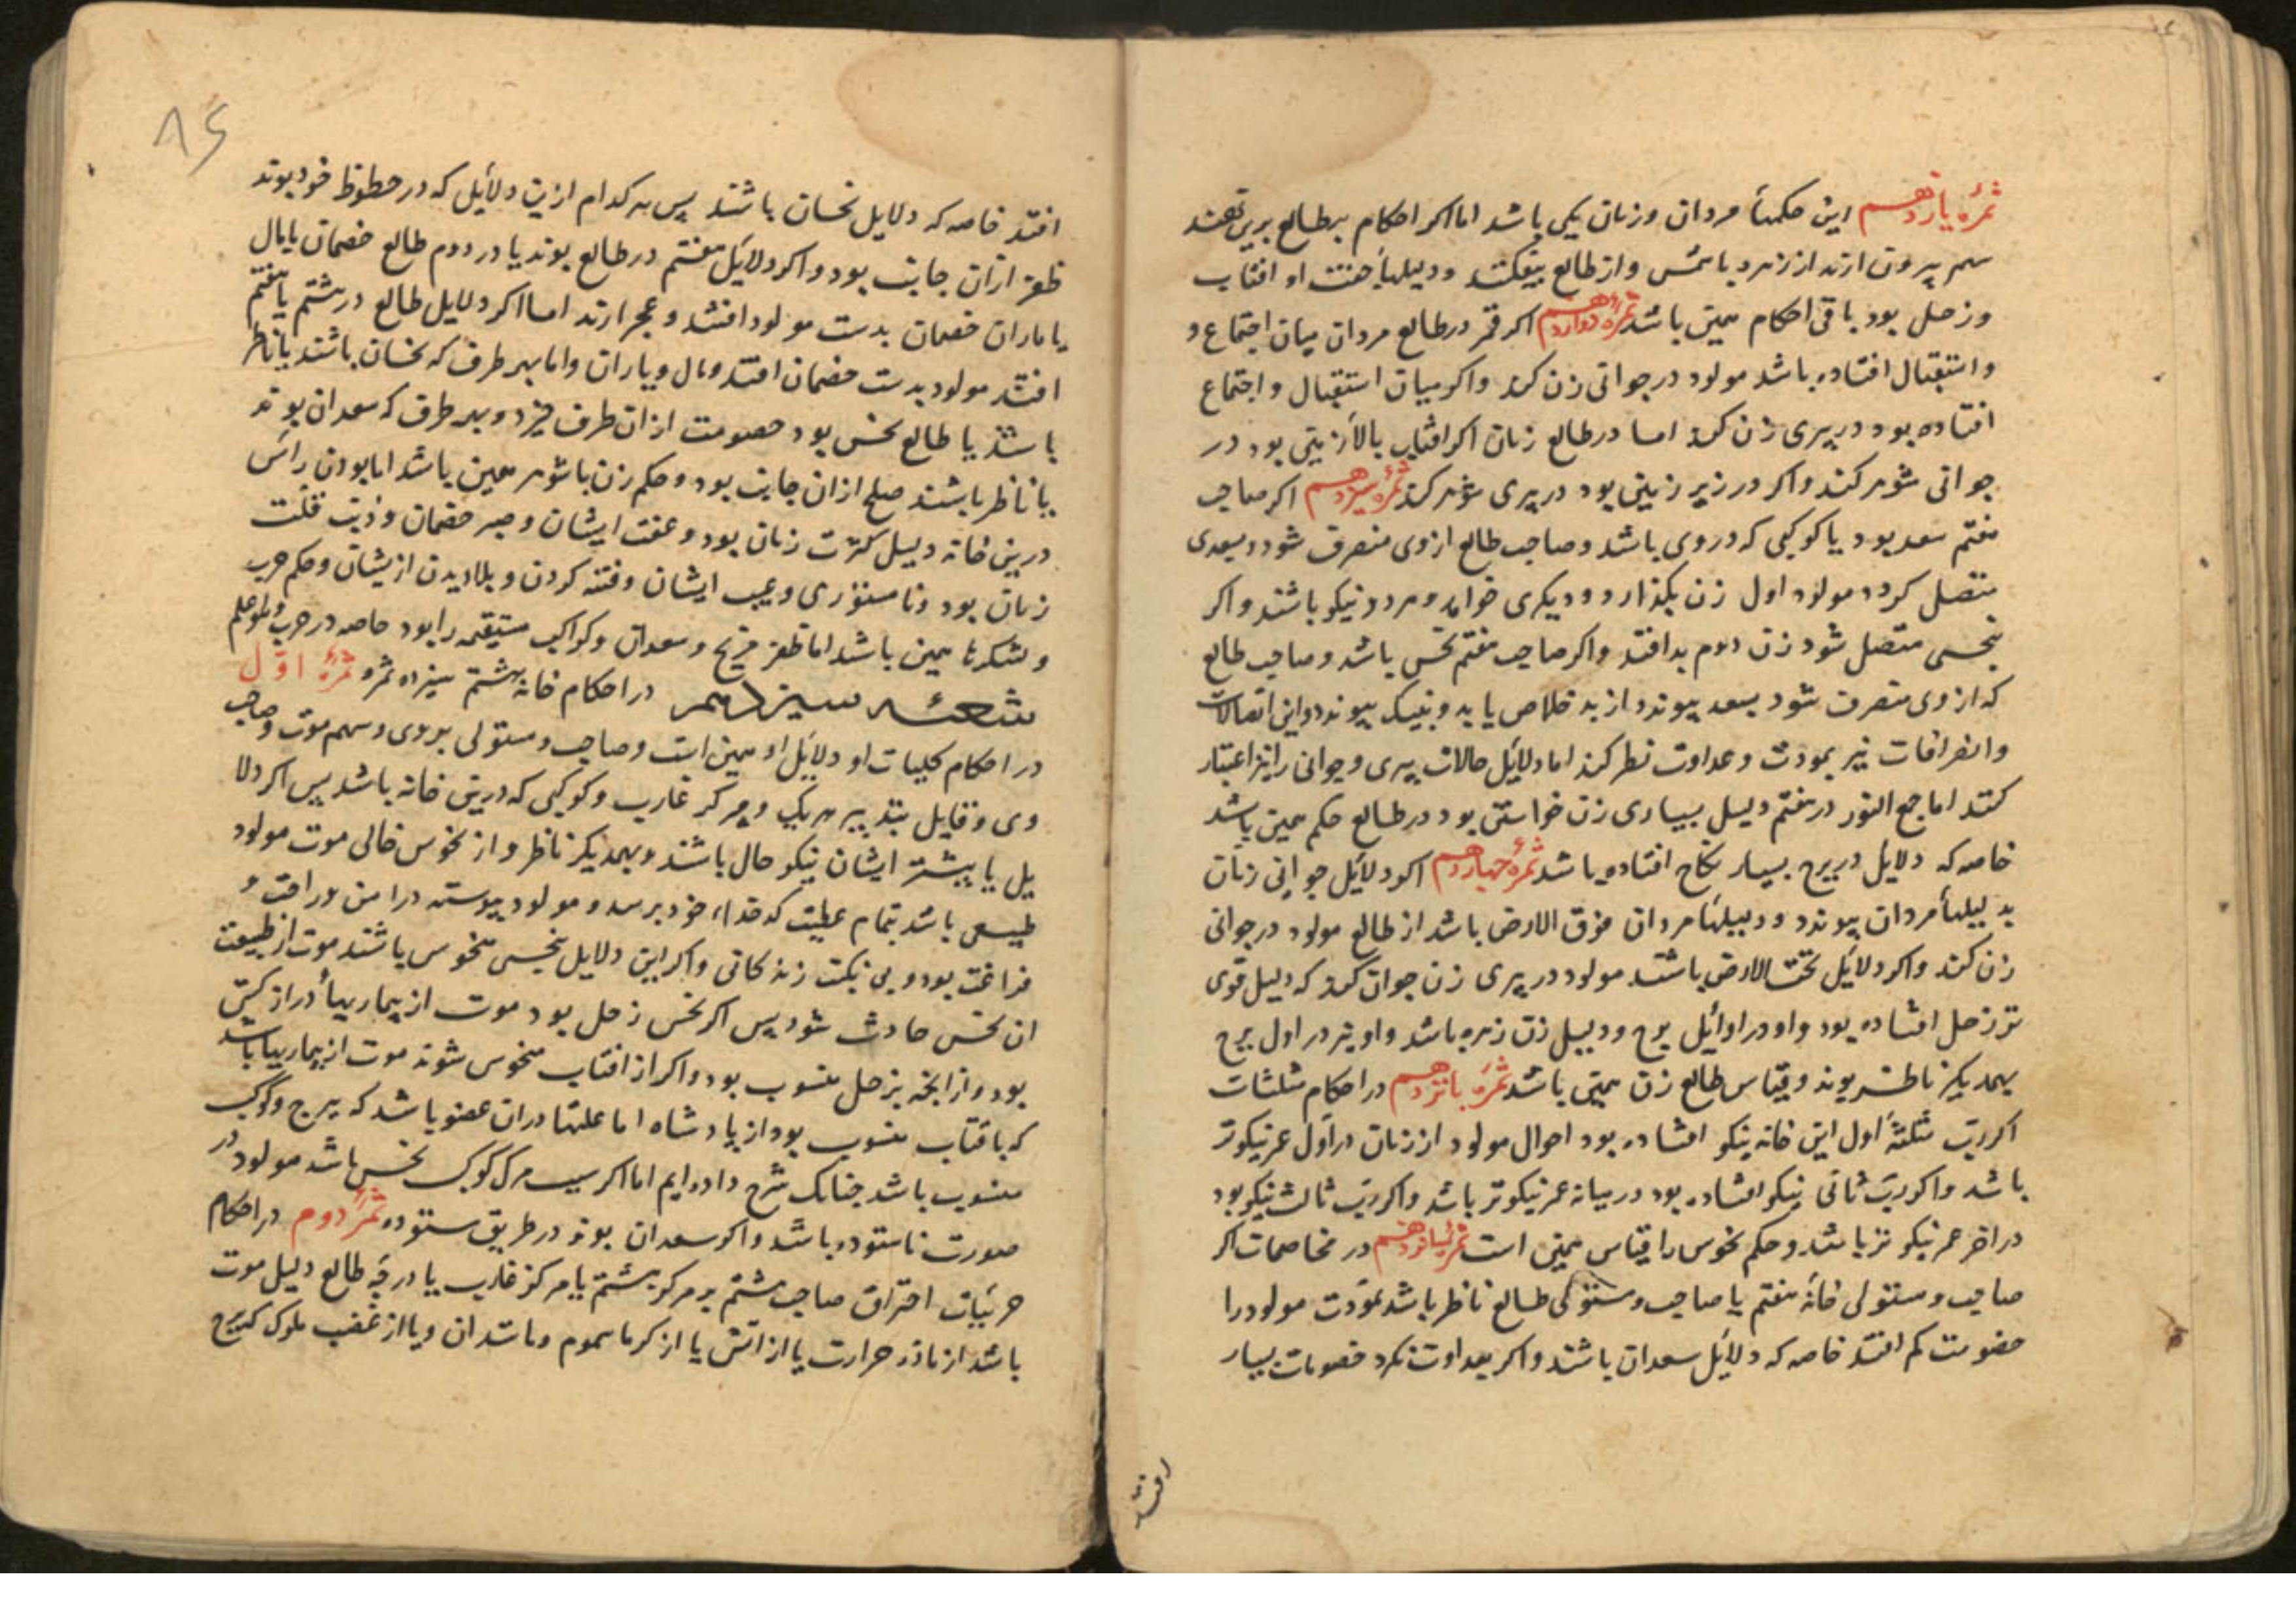 ثمره یازدهم این حکمهأ مردان وزنان یکی باشد اما اکر احکام برطالع بریں نهند
سهم بیرون ارند از زهره باشمس واز طالع بیفکنند ودلیلهأ جفت او افتاب
وزحل بود باقی احکام همین باشد ثمرهٔ دوازدهم اکر قمر درطالع مردان میان اجتماع و
واستقبال افتاده باشد مولود درجوانی زن کند واکر میان استقبال واجتماع
افتاده بود در پیری زن کند اما درطالع زنان اکر افتاب بالأ زمین بود در
جوانی شوهر کند واکر در زیر زمین بود در پیری شوهر کند ثمرهٔ سیزدهم اکر صاحب
هفتم سعد بود یا کوکبی که دروی باشد وصاحب طالع ازوی منصرف شود وبسعدی
متصل کردد مولود اول زن بکذارد ودیکری خواهد وهردو نیکو باشند واکر
بنحسی متصل شود زن دوم بد افتد واکر صاحب هفتم نحس باشد وصاحب طالع
که ازوی منصرف شود بسعد پیوندد از بد خلاص یابد وبنیک پیوندد واین اتصالات
وانصرافات نیز بمودت وعداوت نظر کند اما دلایل حالات پیری وجوانی را نیز اعتبار
کنند اما جمع النور در هفتم دلیل بسیاری زن خواستن بود درطالع حکم همین باشد
خاصه که دلایل در برج بسیار نکاح افتاده باشد ثمرهٔ چهاردهم اکر دلائل جوانی زنان
بدلیلهأ مردان پیوندد ودلیلهأ مردان فوق الارض باشد از طالع مولود درجوانی
زن کند واکر دلائل تحت الارض باشند مولود در پیری زن جوان کند که دلیل قوی
تر زحل افتاده بود واو در اوائل برج ودلیل زن زهره باشد واو نیز در اول برج
بهمدیکر ناظر بوند وقیاس طالع زن همین باشد ثمرهٔ پانزدهم در احکام مثلثات
اکر رب مثلثهٔ اول این خانه نیکو افتاده بود احوال مولود از زنان در اول عمر نیکوتر
باشد واکر رب ثانی نیکو افتاده بود در میانه عمر نیکوتر باشد واکر رب ثالث نیکو بود
در اخر عمر نیکوتر باشد وحکم نحوس را قیاس همین است ثمرهٔ شانزدهم در مخاصمات اکر
صاحب ومستولی خانهٔ هفتم با صاحب ومستولی طالع ناظر باشد بمودت مولود را
خصومت کم افتد خاصه که دلائل سعدان باشند واکر بعداوت نکرد خصومات بسیار
افتد
٨٦
افتد خاصه که دلایل نحسان باشند پس هر کدام ازین دلائل که در حظوظ خود بوند
ظفر ازان جانب بود واکر دلائل هفتم در طالع بوند یا در دوم طالع خصمان یا مال
یا یاران خصمان بدست مولود افتند وعجز ارند اما اکر دلایل طالع در هشتم یا هفتم
افتند مولود بدست خصمان افتد ومال ویاران واما بهر طرف که نحسان باشند یا ناظر
باشند یا طالع نحس بود خصومت ازان طرف خیزد وبهر طرف که سعدان بوند
یا ناظر باشند صلح ازان جانب بود وحکم زن باشوهر همین باشد اما بودن رأس
درین خانه دلیل کثرت زنان بود وعفت ایشان وصبر خصمان وذنب قلت
زنان بود ونامستوری وعیب ایشان وفتنه کردن وبلا دیدن ازیشان وحکم حرب
ولشکرها همین باشد اما ظفر مریخ وسعدان وکواکب مستقیم را بود خاصه در حرب
شعبهٔ سیزدهم در احکام خانهٔ هشتم سیزده ثمره ثمرهٔ اوّل
در احکام کلیات او دلایل او همین است وصاحب ومستولی بروی وسهم موت وصاحب
وی وقابل تدبیر هر یک ومرکز غارب وکوکبی که درین خانه باشد پس اکر دلا
یل یا بیشتر ایشان نیکو حال باشند وبهمدیکر ناظر واز نحوس خالی موت مولود
طبیعی باشد بتمام عطیت کدخداء خود برسد ومولود پیوسته در امن وراحت و
فراغت بود وبی نکبت زندکانی واکر این دلایل بنحسی منحوس باشند موت از طبیعت
ان نحس حادث شود پس اکر نحس زحل بود موت از بیماریهأ دراز کش
بود واز انچه بزحل منسوب بود واکر از افتاب منحوس شوند موت از بیماریها باشد
که بافتاب منسوب بود از پادشاه اما علتها دران عضو باشد که ببرج وکوکب
منسوب باشد چنانک شرح داده ایم اما اکر سبب مرک کوکب نحس باشد مولود در
صورت ناستوده باشد واکر سعدان بوند در طریق ستوده ثمرهٔ دوم در احکام
جزئیات احتراق صاحب هشتم بر مرکز هشتم یا مرکز غارب یا درجهٔ طالع دلیل موت
باشد از مادهٔ حرارت یا از اتش یا از کرما سموم ومانند ان ویا از غضب ملوک